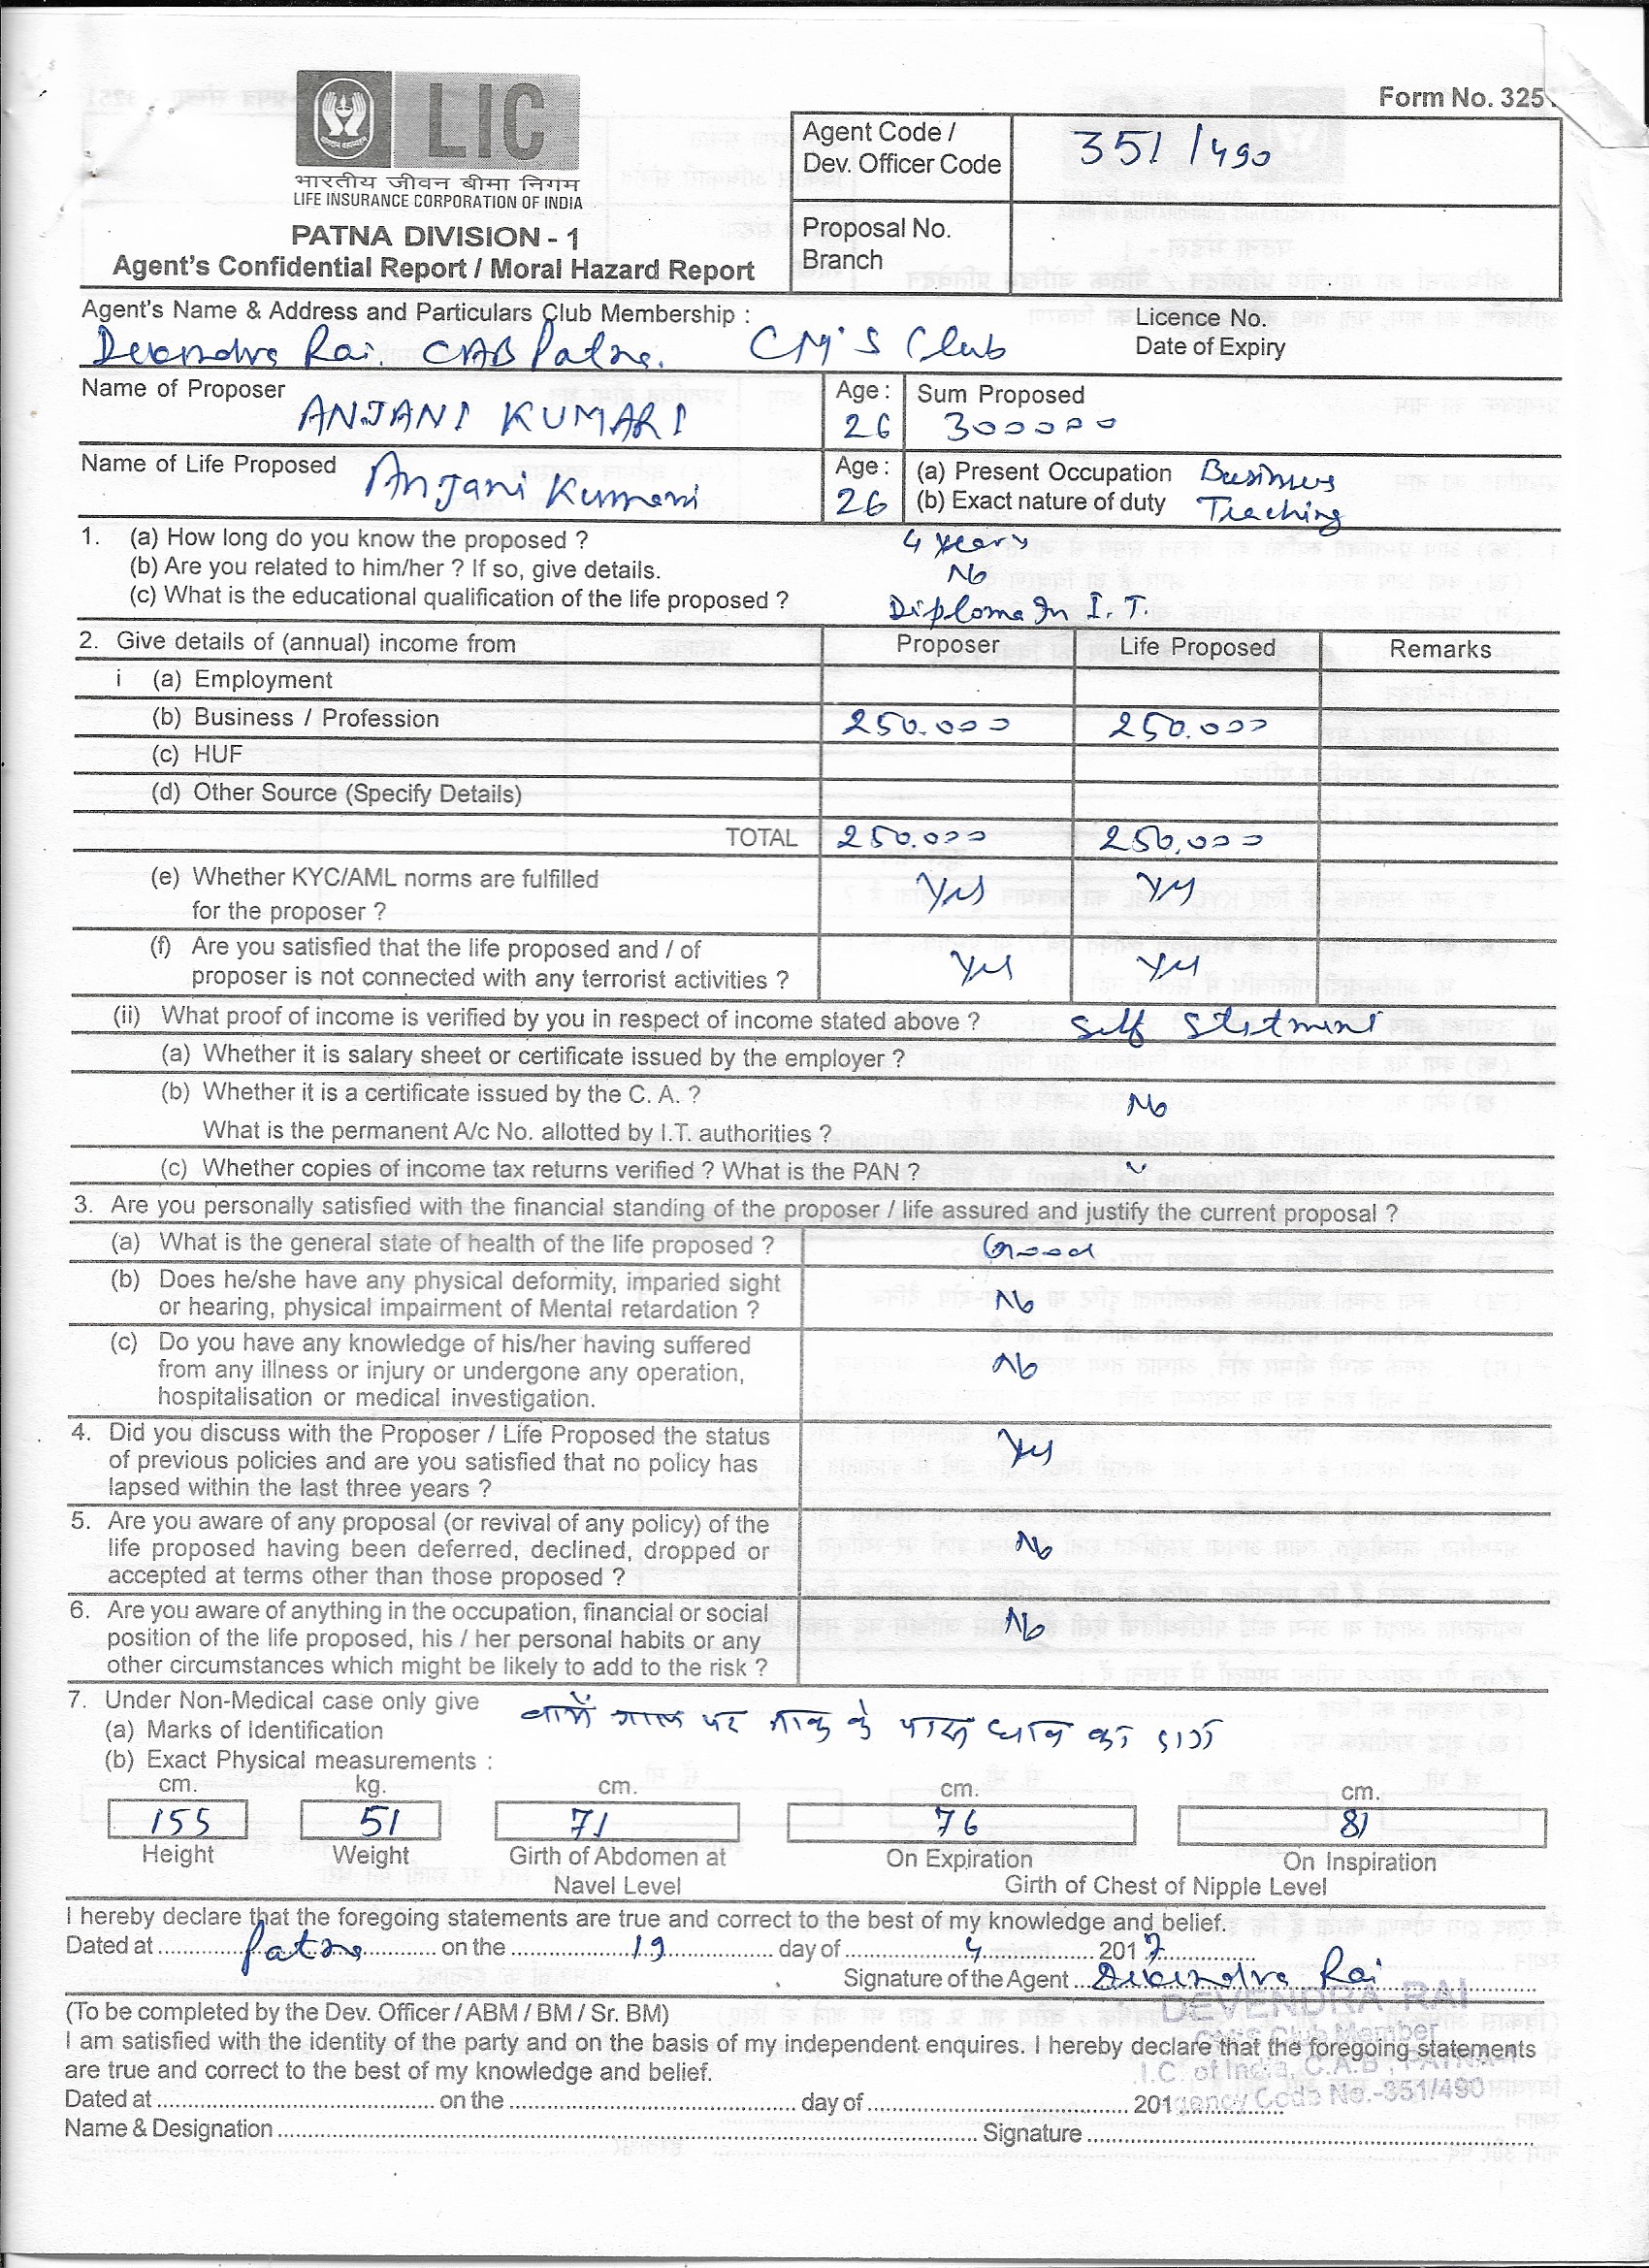 Form No. 325
LIC
भारतीय जीवन बीमा निगम
LIFE INSURANCE CORPORATION OF INDIA
PATNA DIVISION - 1
Agent's Confidential Report / Moral Hazard Report
Agent Code /
Dev. Officer Code
351 / 490
Proposal No.
Branch
Agent's Name & Address and Particulars Club Membership :
Devendra Rai. CAB Patna. CM'S Club
Licence No.
Date of Expiry
Name of Proposer ANJANI KUMARI
Age : 26
Sum Proposed 300000
Name of Life Proposed Anjani Kumari
Age : 26
(a) Present Occupation Business
(b) Exact nature of duty Teaching
1. (a) How long do you know the proposed ? 4 years
(b) Are you related to him/her ? If so, give details. No
(c) What is the educational qualification of the life proposed ? Diploma In I. T.
2. Give details of (annual) income from Proposer Life Proposed Remarks
i (a) Employment
(b) Business / Profession 250.000 250.000
(c) HUF
(d) Other Source (Specify Details)
TOTAL 250.000 250.000
(e) Whether KYC/AML norms are fulfilled Yes Yes
for the proposer ?
(f) Are you satisfied that the life proposed and / of
proposer is not connected with any terrorist activities ? Yes Yes
(ii) What proof of income is verified by you in respect of income stated above ? Self Statment
(a) Whether it is salary sheet or certificate issued by the employer ?
(b) Whether it is a certificate issued by the C. A. ? No
What is the permanent A/c No. allotted by I.T. authorities ?
(c) Whether copies of income tax returns verified ? What is the PAN ?
3. Are you personally satisfied with the financial standing of the proposer / life assured and justify the current proposal ?
(a) What is the general state of health of the life proposed ? Good
(b) Does he/she have any physical deformity, imparied sight
or hearing, physical impairment of Mental retardation ? No
(c) Do you have any knowledge of his/her having suffered
from any illness or injury or undergone any operation, No
hospitalisation or medical investigation.
4. Did you discuss with the Proposer / Life Proposed the status
of previous policies and are you satisfied that no policy has Yes
lapsed within the last three years ?
5. Are you aware of any proposal (or revival of any policy) of the
life proposed having been deferred, declined, dropped or No
accepted at terms other than those proposed ?
6. Are you aware of anything in the occupation, financial or social
position of the life proposed, his / her personal habits or any No
other circumstances which might be likely to add to the risk ?
7. Under Non-Medical case only give
(a) Marks of Identification गाल पर नाक के पास घाव का दाग
(b) Exact Physical measurements :
cm. kg. cm. cm. cm.
155 51 71 76 81
Height Weight Girth of Abdomen at On Expiration On Inspiration
Navel Level Girth of Chest of Nipple Level
I hereby declare that the foregoing statements are true and correct to the best of my knowledge and belief.
Dated at Patna on the 19 day of 4 2017
Signature of the Agent Devendra Rai
DEVENDRA RAI
(To be completed by the Dev. Officer / ABM / BM / Sr. BM)
Club Member
I am satisfied with the identity of the party and on the basis of my independent enquires. I hereby declare that the foregoing statements
are true and correct to the best of my knowledge and belief.
I.C. of India, C.A.B, PATNA-1
Dated at on the day of 201
gency Code No.-351/490
Name & Designation Signature